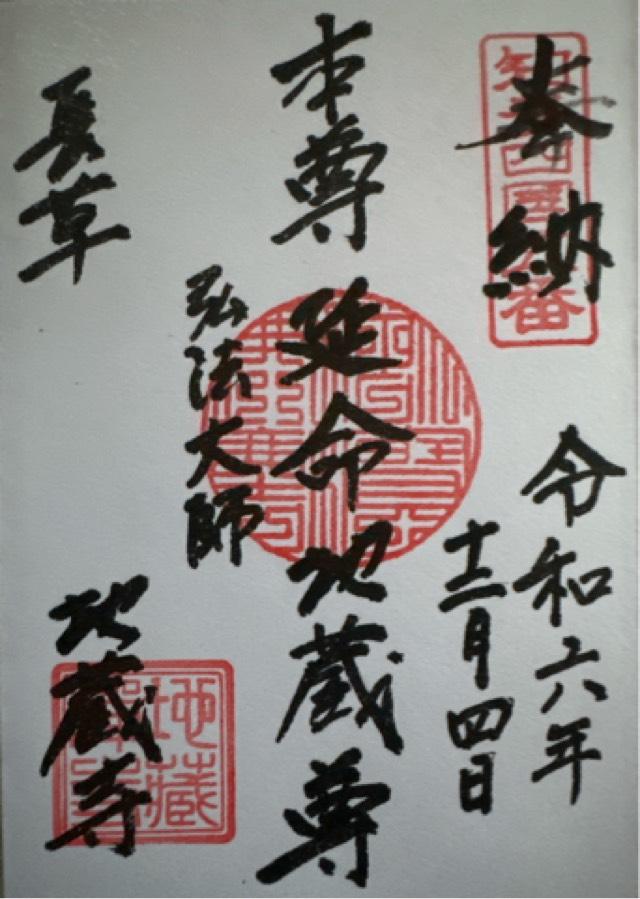 奉納
知多四國番
令和六年
十二月四日
本尊 延命地蔵尊
弘法大師
長草
地蔵寺
地藏